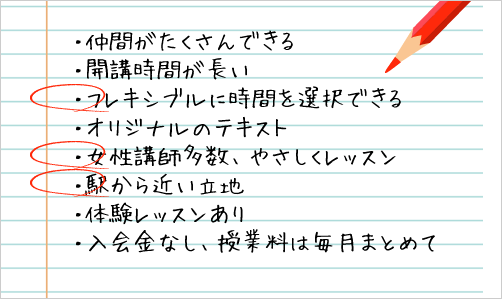 ・仲間がたくさんできる
・開講時間が長い
・フレキシブルに時間を選択できる
・オリジナルのテキスト
・女性講師多数、やさしくレッスン
・駅から近い立地
・体験レッスンあり
・入会金なし、授業料は毎月まとめて